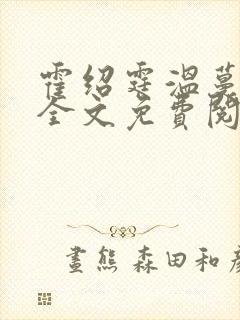 霍绍霆温蔓
全文免费阅
画熊 森田和彦